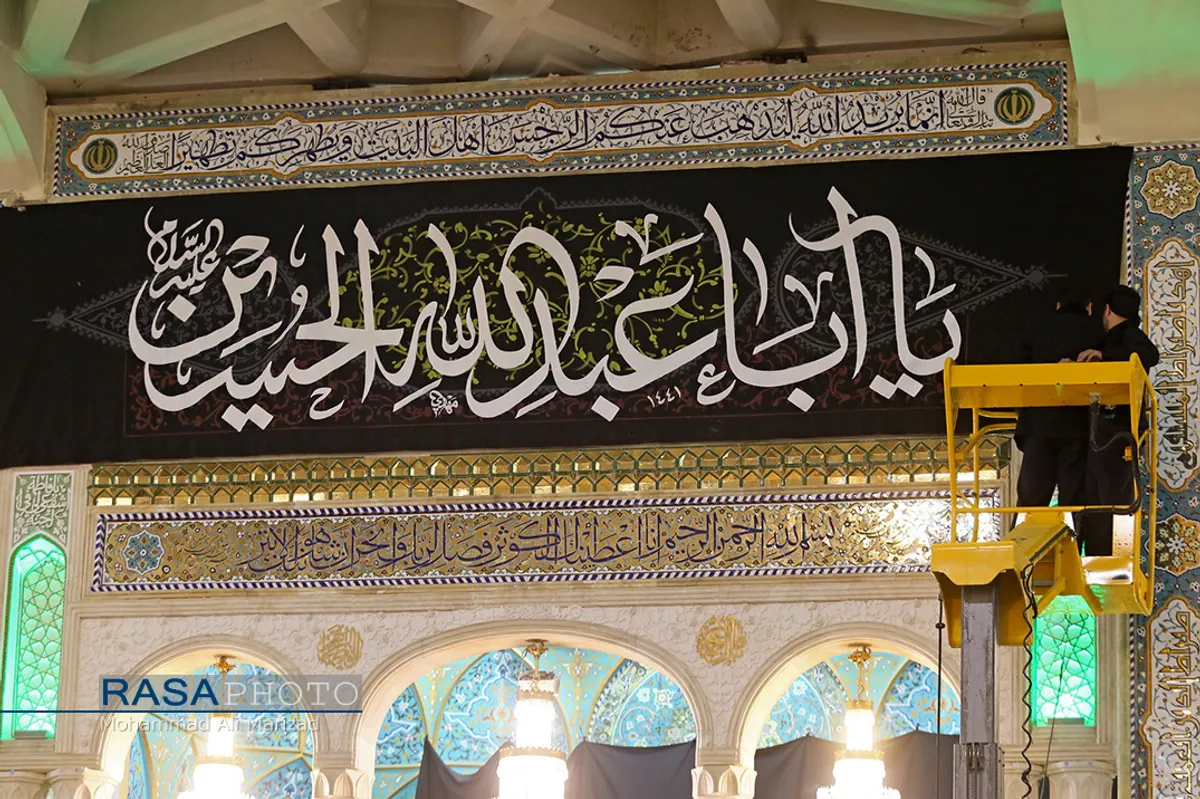 قال الله تبارک و تعالی
إنما یرید الله لیذهب عنکم الرجس اهل البیت ویطهرکم تطهیرا
یا اباعبدالله الحسین علیه السلام
۱۴۴۱
بسم الله الرحمن الرحیم انا اعطیناک الکوثر فصل لربک وانحر ان شانئک هو الابتر
RASA PHOTO
Mohammad Ali Marizad